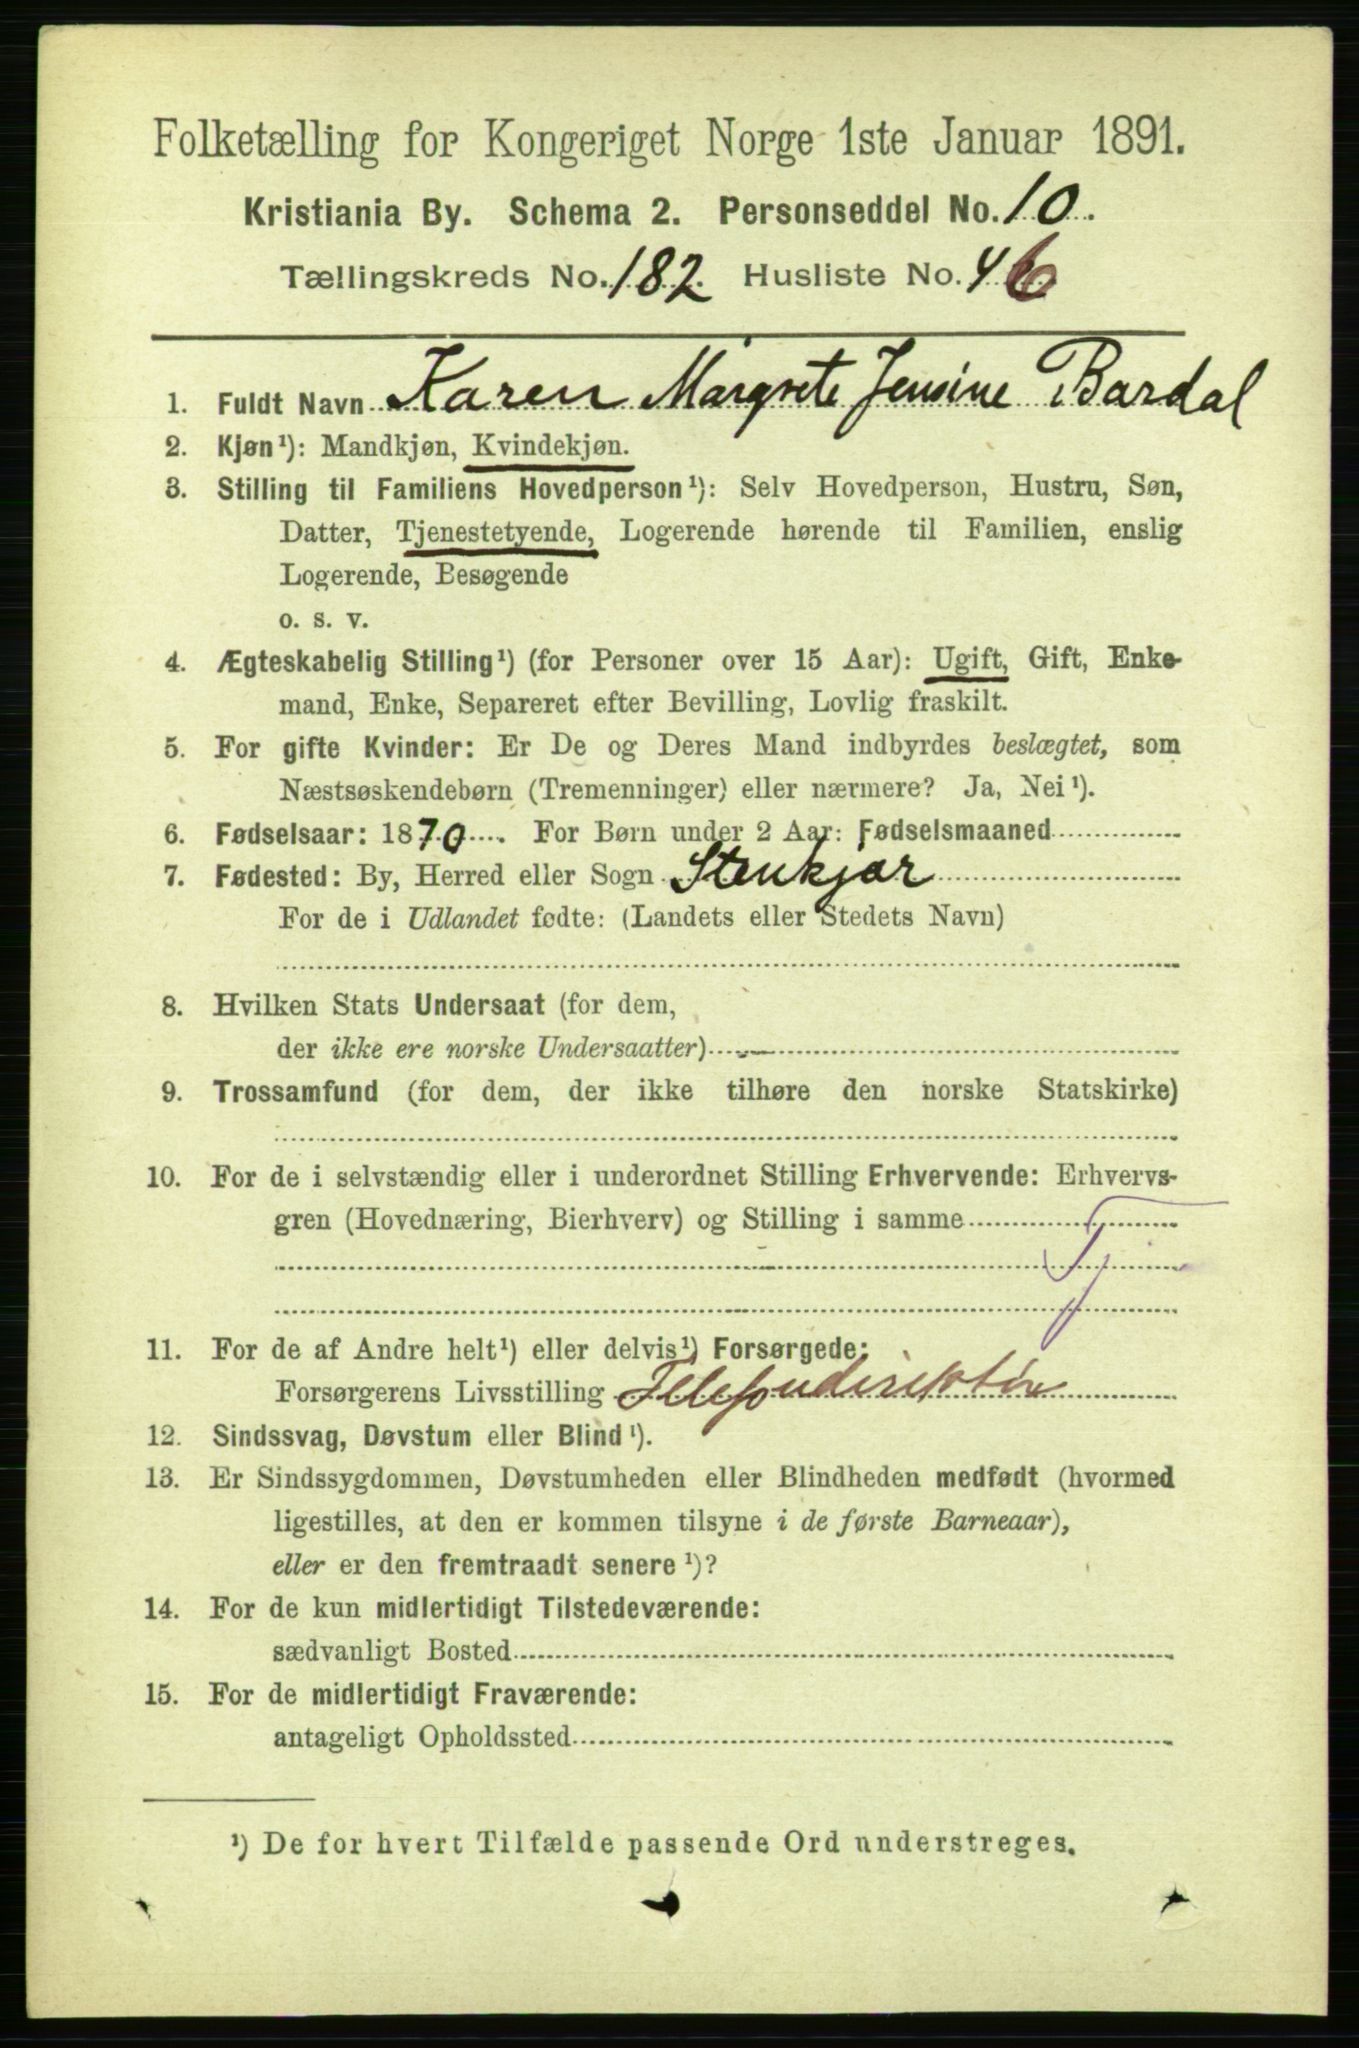 Folketælling for Kongeriget Norge 1ste Januar 1891.
Kristiania By. Schema 2. Personseddel No. 10.
Tællingskreds No. 182. Husliste No. 46
1. Fuldt Navn Karen Margrete Jensine Bardal
2. Kjøn¹): Mandkjøn, Kvindekjøn.
3. Stilling til Familiens Hovedperson¹): Selv Hovedperson, Hustru, Søn,
Datter, Tjenestetyende, Logerende hørende til Familien, enslig
Logerende, Besøgende
o. s. v.
4. Ægteskabelig Stilling¹) (for Personer over 15 Aar): Ugift, Gift, Enke-
mand, Enke, Separeret efter Bevilling, Lovlig fraskilt.
5. For gifte Kvinder: Er De og Deres Mand indbyrdes beslægtet, som
Næstsøskendebørn (Tremenninger) eller nærmere? Ja, Nei¹).
6. Fødselsaar: 1870. For Børn under 2 Aar: Fødselsmaaned
7. Fødested: By, Herred eller Sogn Stenkjær
For de i Udlandet fødte: (Landets eller Stedets Navn)
8. Hvilken Stats Undersaat (for dem,
der ikke ere norske Undersaatter)
9. Trossamfund (for dem, der ikke tilhøre den norske Statskirke)
10. For de i selvstændig eller i underordnet Stilling Erhvervende: Erhvervs-
gren (Hovednæring, Bierhverv) og Stilling i samme
Tj
11. For de af Andre helt¹) eller delvis¹) Forsørgede:
Forsørgerens Livsstilling Telefondirektør
12. Sindssvag, Døvstum eller Blind¹).
13. Er Sindssygdommen, Døvstumheden eller Blindheden medfødt (hvormed
ligestilles, at den er kommen tilsyne i de første Barneaar),
eller er den fremtraadt senere¹)?
14. For de kun midlertidigt Tilstedeværende:
sædvanligt Bosted
15. For de midlertidigt Fraværende:
antageligt Opholdssted
¹) De for hvert Tilfælde passende Ord understreges.